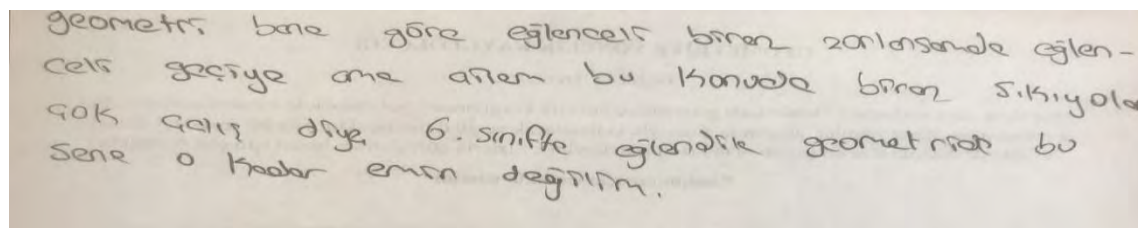 geometri bana göre eğlenceli biraz zorlansamda eğlen-
celi geçiye ama ailem bu konuda biraz sıkıyola
çok çalış diye 6. sınıfta eğlendik geometride bu
sene o kadar emin değilim.